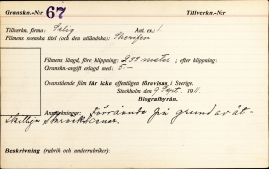 Granskn.-Nr 67 Tillverkn.-Nr
Tillverkn. firma: Selig Ant. ex. 1
Filmens svenska titel (och den utländska):
Filmens längd, före klippning: 250 meter; efter klippning:
Granskn.-avgift erlagd med: 5.-
Ovanstående film får icke offentligen förevisas i Sverige.
Stockholm den 9 Sept. 1911.
Biografbyrån.
Anmärkningar: på grund av åt-
Beskrivning (rubrik och underrubriker):